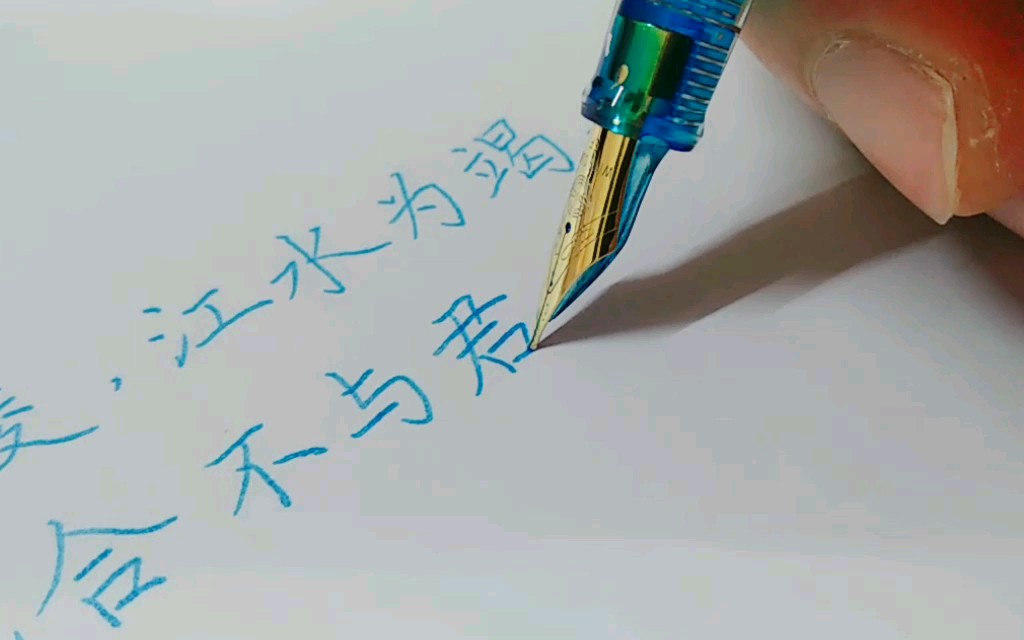 ，江水为竭
合不与君